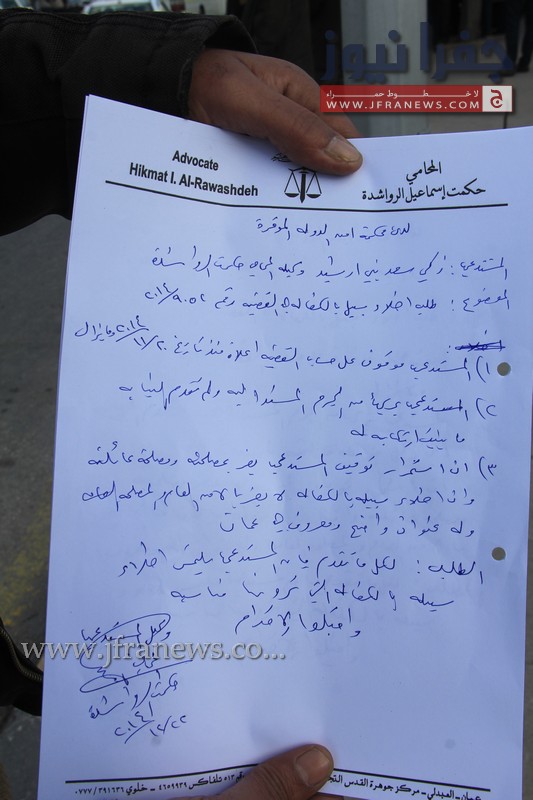 جفرا نيوز
لاخطوط حمراء
WWW.JFRANEWS.COM
Advocate
Hikmat I. Al-Rawashdeh
المحامي
حكمت إسماعيل الرواشدة
لدى محكمة امن الدولة الموقرة
المستدعي : زكي سعد بني ارشيد وكيله المحامي حكمت الرواشدة
الموضوع : طلب اخلاء سبيل بالكفالة في القضية رقم ٢٠١٤/٩٠٥٢
١) المستدعي موقوف على حساب القضية اعلاه منذ تاريخ ٢٠١٤/١١/٢٠ وما يزال
٢) المستدعي بريء من الجرم المسند اليه ولم تقدم النيابة
ما يثبت ارتكابه له
٣) ان استمرار توقيف المستدعي يضر بمصلحته ومصلحة عائلته
وان اخلاء سبيله بالكفالة لا يضر بالامن العام او المصلحة العامة
وله عنوان واضح ومعروف في عمان
الطلب : لكل ما تقدم فان المستدعي يلتمس اخلاء
سبيله بالكفالة التي ترونها مناسبة
واقبلوا الاحترام
وكيل المستدعي
المحامي
حكمت الرواشدة
٢٠١٤/١٢/٢٢
www.jfranews.co...
عمان - العبدلي - مركز جوهرة القدس التجـ
٥١٣ تلفاكس ٤٦٥٩٩٣٩ - خلوي ٠٧٧٧/٣٩١٦٣٦